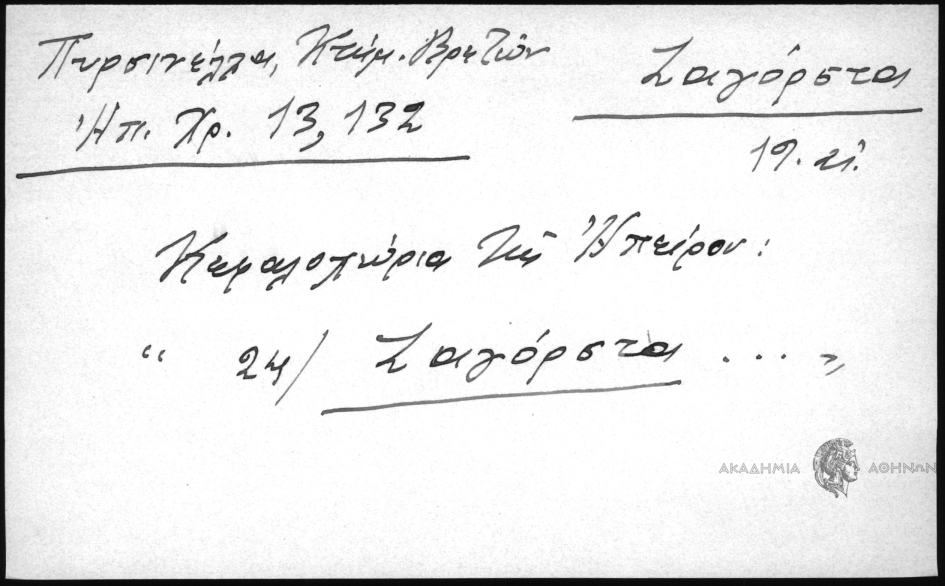 Πυρσινέλλα, Κτήμ. Βρετῶν
Ἠπ. Χρ. 13, 132
Ζαγόρστα
19. αἰ.
Κεφαλοχώρια τῆς Ἠπείρου:
“ 24/ Ζαγόρστα .... „
ΑΚΑΔΗΜΙΑ ΑΘΗΝΩΝ